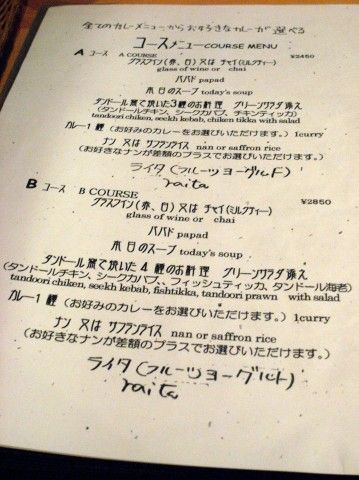 全てのカレーメニューからお好きなカレーが選べる
コースメニュー COURSE MENU
A コース A COURSE ¥2450
グラスワイン(赤、白)又は チャイ(ミルクティー)
glass of wine or chai
パパド papad
本日のスープ today's soup
タンドール窯で焼いた3種のお料理 グリーンサラダ添え
(タンドールチキン、シークカバブ、チキンティッカ)
tandoori chiken, seekh kebab, chiken tikka with salad
カレー1種 (お好みのカレーをお選びいただけます。) 1curry
ナン 又は サフランライス nan or saffron rice
(お好きなナンが差額のプラスでお選びいただけます。)
ライタ(フルーツヨーグルト)
raita
B コース B COURSE ¥2850
グラスワイン(赤、白)又は チャイ(ミルクティー)
glass of wine or chai
パパド papad
本日のスープ today's soup
タンドール窯で焼いた4種のお料理 グリーンサラダ添え
(タンドールチキン、シークカバブ、、フィッシュティッカ、タンドール海老)
tandoori chiken, seekh kebab, fishtikka, tandoori prawn with salad
カレー1種 (お好みのカレーをお選びいただけます。) 1curry
ナン 又は サフランライス nan or saffron rice
(お好きなナンが差額のプラスでお選びいただけます。)
ライタ(フルーツヨーグルト)
raita